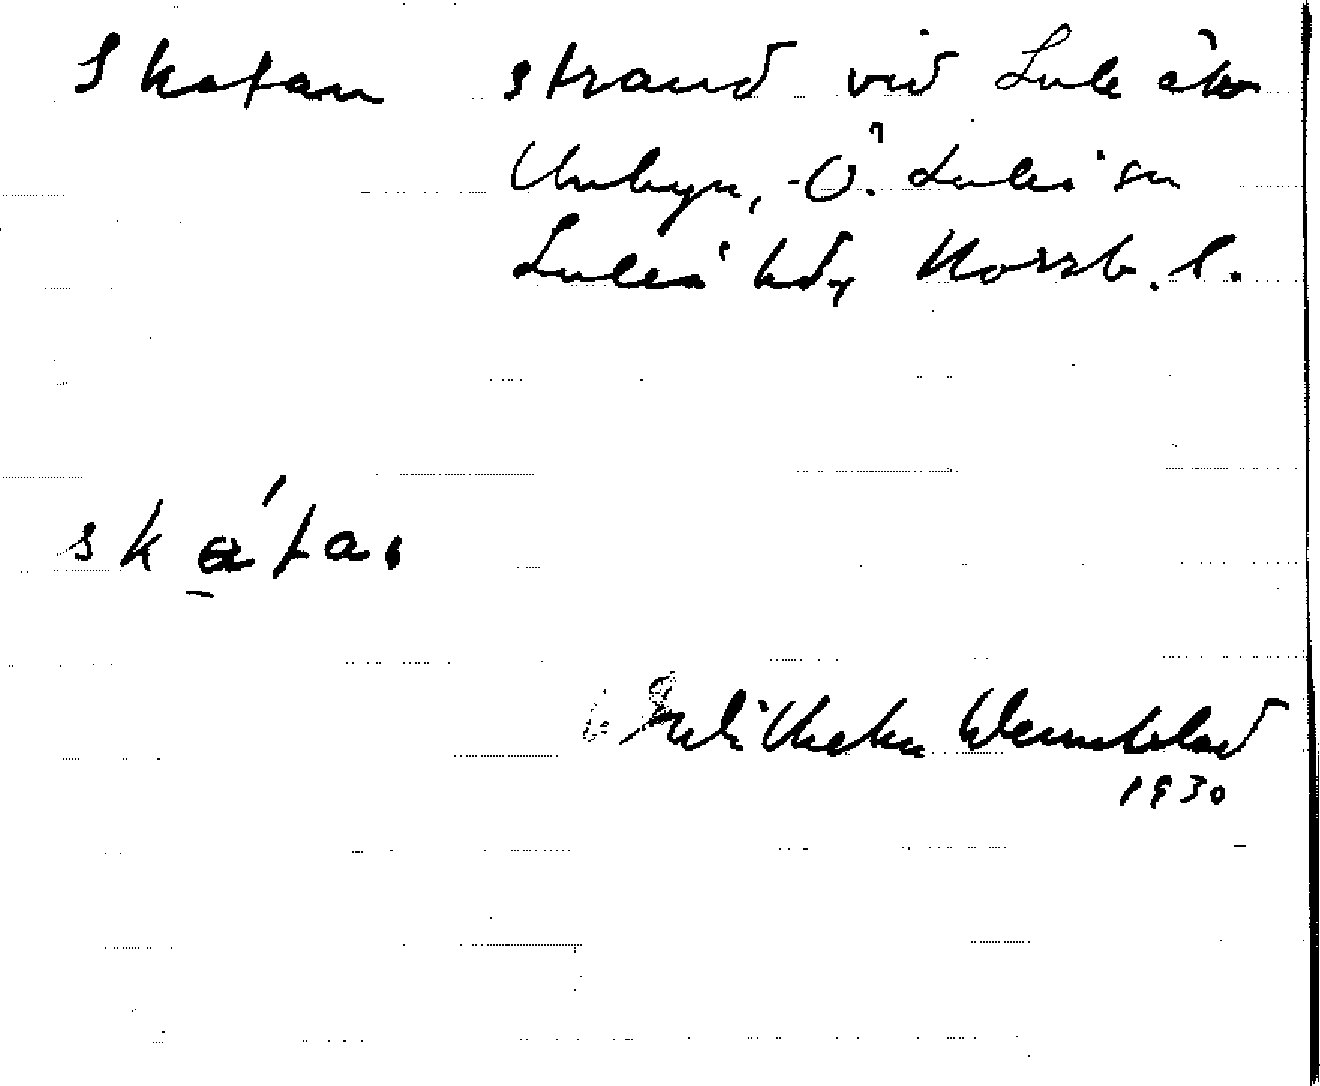 Skatan strand vid Lule älv
Unbyn, Ö. Luleå sn
Luleå hdr Norrb. l.
skáta.
Wennblad
1930